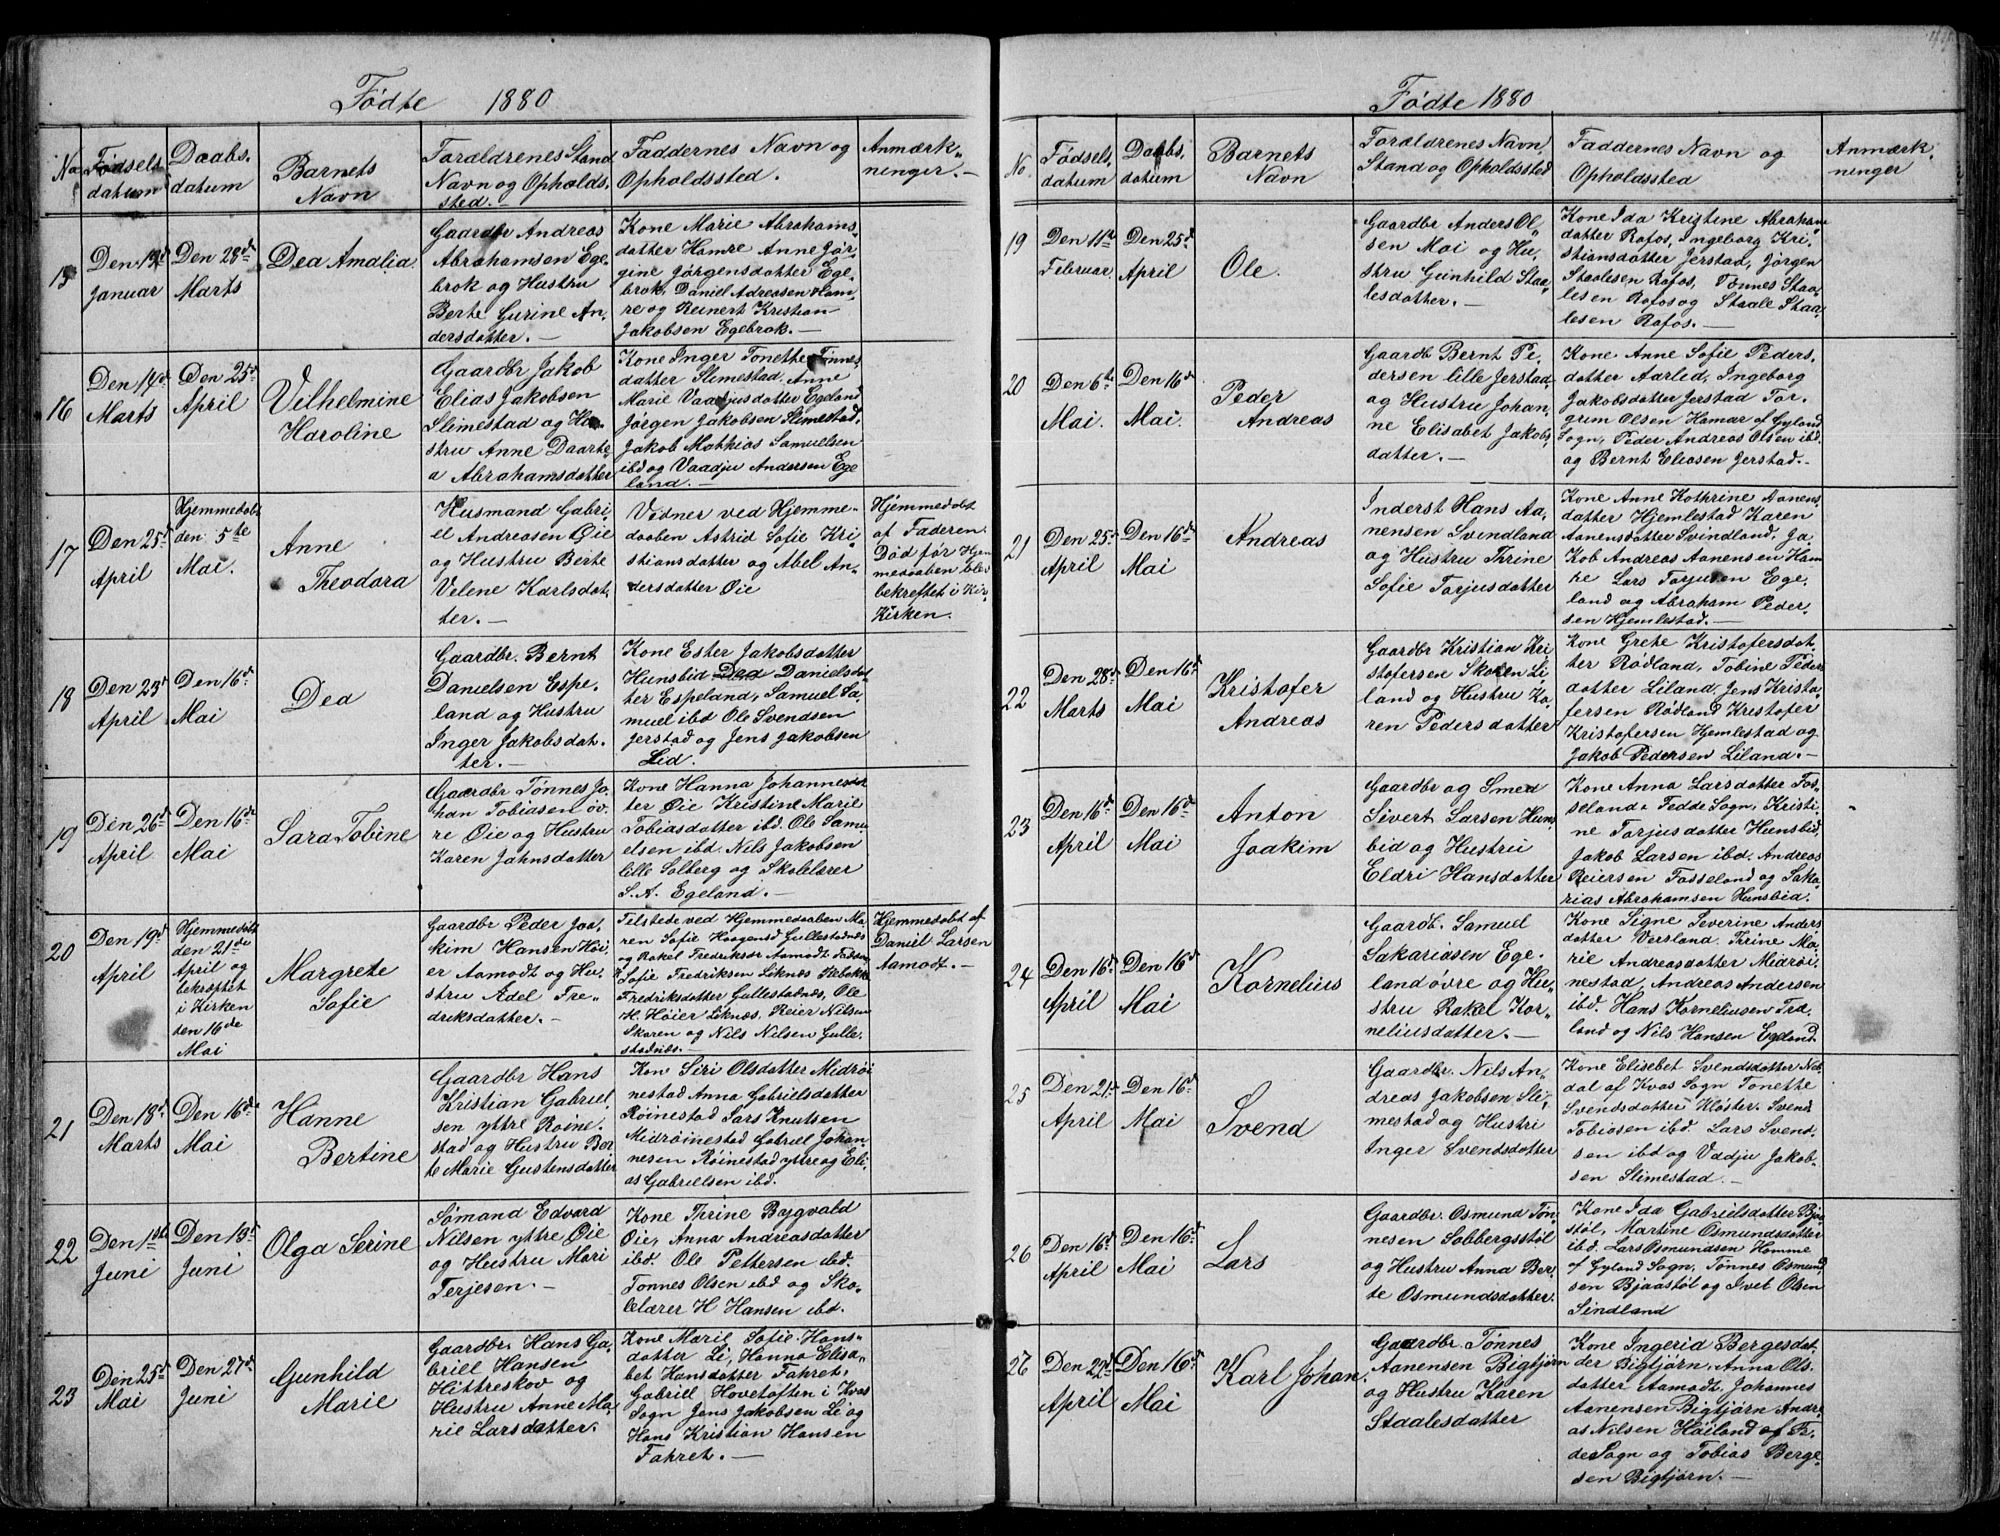 Fødte 1880
No
Fødsels
datum
Daabs.
datum
Barnets
Navn
Foraldrenes Stand
Navn og Opholds,
sted.-
Faddernes Navn og
Opholdssted.
Anmærk„
ninger.-
15
Januar
Den 28de
Marts
Dea Amalia
Gaardbr Andreas
Abrahamsen Ege„
brok og Hustru
Berte Gurine An„
dersdatter.-
Kone Marie Abrahams„
datter Hamre Anne Jør„
gine Jørgensdatter Ege„
brok, Daniel Adreasen Ham„
re og Reinert Kristian
Jakobsen Egebrok.-
16
Den 14de
Marts
Den 25de
April
Vilhelmine
Haroline
Gaardbr Jakob
Elias Jakobsen
Slimestad og Hu„
stru Anne Daarte„
a Abrahamsdatter
Kone Inger Tonette Tønnes
datter Slimestad. Anne
Marie Vaadjusdatter Egeland
Jörgen Jakobsen Slimestad,
Jakob Mathias Samuelsen
ibd og Vaadju Andersen Ege
land.-
17
Den 25de
April
Hjemmedøbt
den 5te
Mai.
Anne
Theodora
Husmand Gabri„
el Andreasen Øie
og Hustru Berte
Velene Karlsdat„
ter.-
Vidner ved Hjemme„
daaben Astrid Sofie Kri„
stiansdatter og Abel An„
dersdatter Øie
Hjemmedøbt
af Faderen.
Død før Hjem
medaaben blev
bekreftet i Kir„
Kirken.
18
Den 23de
April
Den 16de
Mai
Dea
Gaardbr. Bernt
Danielsen Espe„
land og Hustru
Inger Jakobsdat„
ter.-
Kone Ester Jakobsdatter
Hunsbid Dea Danielsdat
ter Espeland, Samuel Sa„
muel ibd Ole Svendsen
Jerstad og Jens Jakobsen
Lid.
19
Den 26de
April
Den 16de
Mai
Sara Tobine
Gaardbr Tønnes Jo„
han Tobiasen öv„
re Øie og Hustru
Karen Jahnsdatter
Kone Hanna Johannesdat
ter Øie Kristine Marie
Tobiasdatter ibd. Ole Samu
elsen ibd. Nils Jakobsen
lille Solberg og Skolelærer
S. A. Egeland.-
20
Den 19de
April
Hjemmedøbt
den 21de
April og
bekræftet
i Kirken
den 16de
Mai
Margrete
Sofie
Gaardbr Peder Joa„
kim Hansen Höi„
er Aamodt og Hu„
stru Adel Fre„
driksdatter.-
Tilstede ved Hjemmedaaben Ma„
ren Sofie Haagensd Gullestadnes
og Rakel Fredriksdr Aamodt
Sofie Fredriksen Liknes
Fredriksdatter Gullestadnes, Ole
H. Høier Liknes. Reier Nilsen
Skaren og Nils Nilsen Gulle„
stadnes.-
Hjemmedøbt af
Daniel Larsen
Aamodt.-
21
Den 18de
Marts
Den 16de
Mai
Hanne
Bertine
Gaardbr Hans
Kristian Gabriel„
sen yttre Röine„
stad og Hustru Ber„
te Marie Gustensdatter
Kon Siri Olsdatter Midröi
nestad Anna Gabrielsdatter
Röinestad Lars Knutsen
Midröinestad Gabriel Johan„
nesen Röinestad yttre og Eli„
as Gabrielsen ibd.
22
Den 1ste
Juni
Den 13de
Juni
Olga Serine
Sømand Edvard
Nilsen yttre Øie
og Hustru Mari
Terjesen.-
Kone Thrine Bygvald
Øie, Anna Andreasdatter
ibd. Ole Pettersen ibd.
Tonnes Olsen ibd og Sko„
lelærer H Hansen ibd.
23
Den 25de
Mai
Den 27de
Juni
Gunhild
Marie
Gaardbr. Hans Ga„
briel Hansen
Hittreskov og
Hustru Anne Ma„
rie Larsdatter.
Kone Marie Sofie Hans„
datter Li, Hanna Elisa„
bet Hansdatter Fahret.
Gabriel Hovetoften i Kvas
Sogn Jens Jakobsen Li og
Hans Kristian Hansen
Fahret.-
Fødte 1880
No
Fødsels.
datum
Daabs.
datum
Barnets
Navn
Foraldrenes Navn,
Stand og Opholdssted
Faddernes Navn og
Opholdssted
Anmærk„
ninger
19
Den 11te
Februar.
Den 25de
April
Ole.
Gaardbr Anders Ol„
sen Moi og Hu„
stru Gunhild Staa„
lesdatter.-
Kone Ida Kristine Abraham
datter Rafos, Ingeborg Kri„
stiansdatter Jerstad, Jørgen
Staalesen Rafos, Tønnes Staa„
lesen Rafos og Staale Staa„
lesen Rafos.-
20
Den 6te
Mai.
Den 16de
Mai.
Peder
Andreas
Gaardb Bernt Pe„
dersen lille Jerstad,
og Hustru Johan„
ne Elisabet Jakobs„
datter.-
Kone Anne Sofie Peders„
datter Aarlid, Ingeborg
Jakobsdatter Jerstad Tor„
gum Olsen Hamar af Gyland
Sogn, Peder Andreas Olsen ibd.
og Bernt Eliasen Jerstad.-
21
Den 25de
April
Den 16de
Mai
Andreas
Inderst Hans Aa„
nensen Svindland
og Hustru Thrine
Sofie Tarjusdatter
Kone Anne Kathrine Aanens
datter Hjemlestad Karen
Aanensdatter Svindland. Ja„
Kob Andreas Aanensen Ham
re Lars Tarjusen Ege„
land og Abraham Peder„
sen Hjemlestad.-
22
Den 28de
Marts
Den 16de
Mai
Kristofer
Andreas
Gaardbr Kristian Kri
stofersen Skoren Li„
land og Hustru Ka„
ren Pedersdatter
Kone Grete Kristofersdat„
ter Rödland, Tobine Peder
datter Liland. Jens Kristo„
fersen Rödland Kristofer
Kristofersen Hjemlestad og
Jakob Pedersen Liland.-
23
Den 16de
April
Den 16de
Mai
Anton
Joakim
Gaardbr og Smed
Sivert Larsen Huns„
bid og Hustru
Eldri Hansdatter
Kone Anna Larsdatter Fos„
seland Fedde Sogn, Kristi„
ne Tarjusdatter Hunsbid,
Jakob Larsen ibd. Andreas
Reiersen Fosseland og Saka„
rias Abrahamsen Hunsbid.
24
Den 16de
April
Den 16de
Mai
Kornelius
Gaardb. Samud
Sakariasen Ege„
land övre og Hu„
stru Rakel Kor„
neliusdatter.-
Kone Signe Severine Anders
datter Versland. Trine Ma„
rie Andreasdatter Midröi„
nestad, Andreas Andersen
ibd. Hans Korneliusen Fra„
land og Nils Hansen Egeland.
25
Den 21de
April
Den 16de
Mai
Svend
Gaardbr. Nils An„
dreas Jakobsen Sli„
mestad og Hustri
Inger Svendsdatter
Kone Elisebet Svendsdatter
dal af Kvas Sogn Tonette
Svendsdatter Kloster. Svend
Tobiasen ibd. Lars Svend„
sen ibd og Vadju Jakob„
sen Slimestad.-
26
Den 16de
April
Den 16de
Mai
Lars
Gaardbr. Osmund Tön„
nesen Solbergsstöl
og Hustru Anna Ber„
te Osmundsdatter.
Kone Ida Gabrielsdatter Bjaa„
stöl, Martine Osmundsdatter
ibd. Lars Osmundsen Homme
af Gyland Sogn, Tönnes Osmund
sen Bjaastöl og Ivet Olsen
Sindland
27
Den 22de
April
Den 16de
Mai
Karl Johan.
Gaardbr. Tønnes
Aanensen Bigtjørn
og Hustru Karen
Staalesdatter
Kone Ingerid Bergesdat„
der Bigtjørn, Anna Ols„
datter Aamodt, Johannes
Aanensen Bigtjørn Andre
as Nilsen Höiland af Fe„
de Sogn og Tobias Berge„
sen Bigtjørn.-